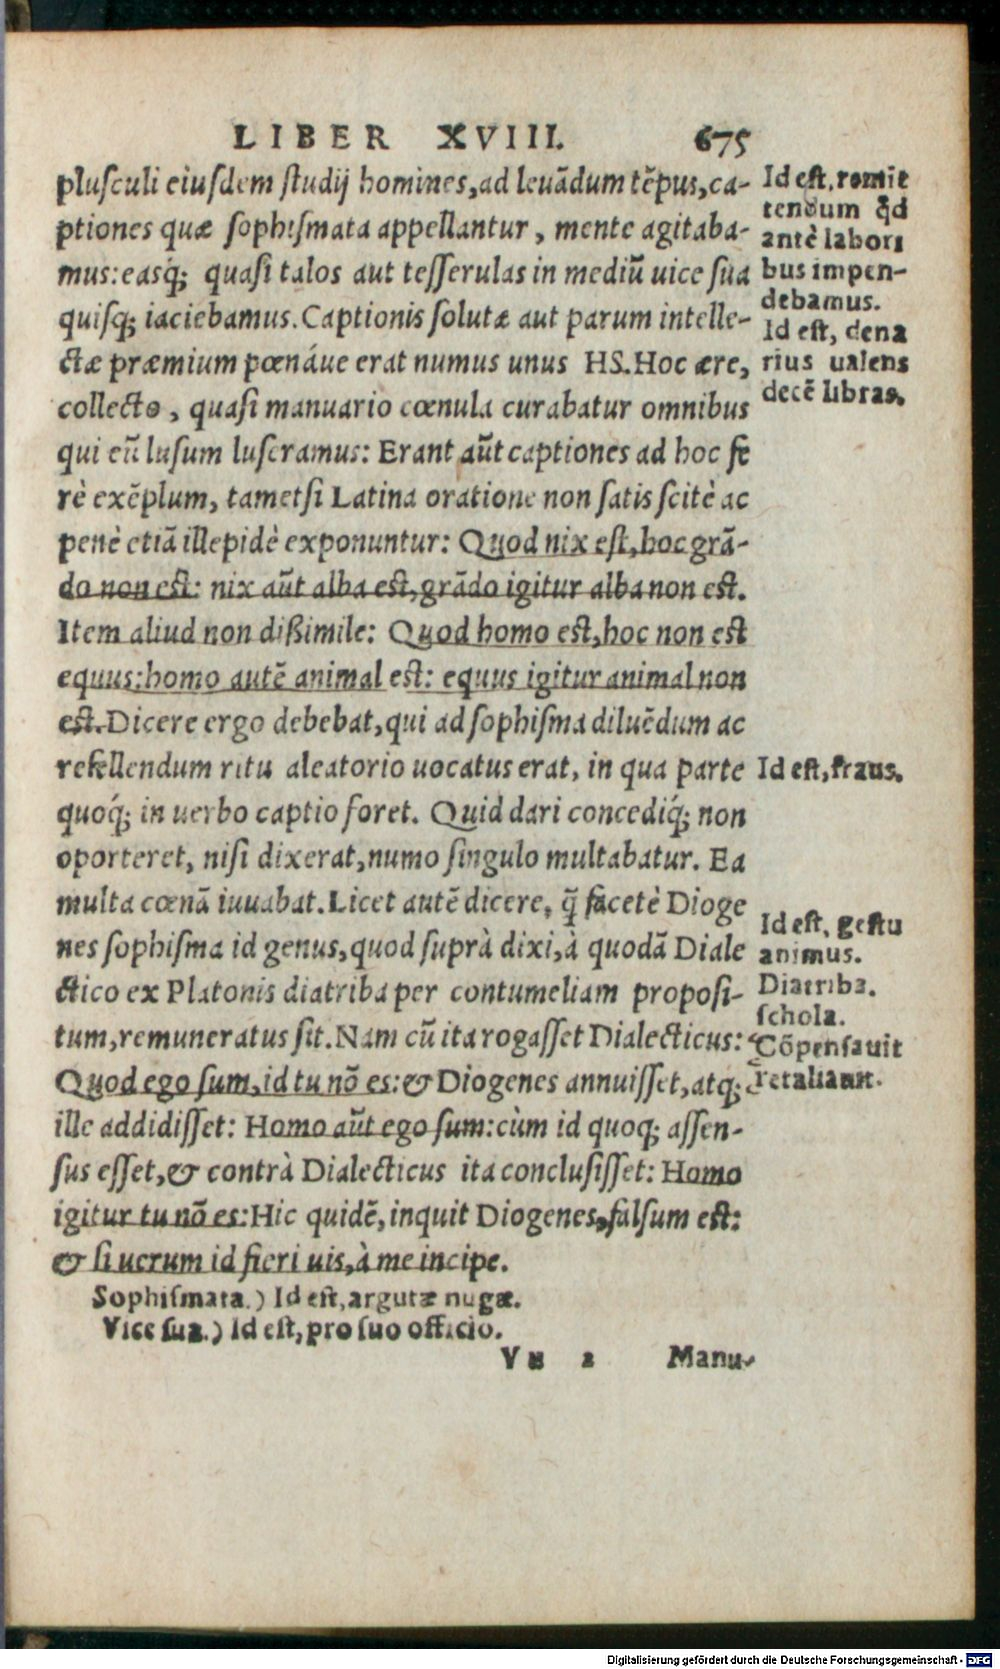 LIBER XVIII. 675
pluſculi eiuſdem ſtudij homines, ad leuādum tēpus, ca-
ptiones quæ ſophiſmata appellantur, mente agitaba-
mus: easq́; quaſi talos aut teſſerulas in mediū uice ſua
quiſq; iaciebamus. Captionis ſolutæ aut parum intelle-
ctæ præmium pœnáue erat numus unus HS. Hoc ære,
collecto, quaſi manuario cœnula curabatur omnibus
qui eū luſum luſeramus: Erant aūt captiones ad hoc fe
rè exēplum, tametſi Latina oratione non ſatis ſcitè ac
penè etiā illepidè exponuntur: Quod nix eſt, hoc grā-
do non eſt: nix aūt alba eſt, grādo igitur alba non eſt.
Item aliud non dißimile: Quod homo eſt, hoc non eſt
equus: homo autē animal eſt: equus igitur animal non
eſt. Dicere ergo debebat, qui ad ſophiſma diluēdum ac
refellendum ritu aleatorio uocatus erat, in qua parte
quoq́; in uerbo captio foret. Quid dari concediq́; non
oporteret, niſi dixerat, numo ſingulo multabatur. Ea
multa cœnā iuuabat. Licet autē dicere, q̄ facetè Dioge
nes ſophiſma id genus, quod ſuprà dixi, à quodā Diale
ctico ex Platonis diatriba per contumeliam propoſi-
tum, remuneratus ſit. Nam cū ita rogaſſet Dialecticus:
Quod ego ſum, id tu nō es: & Diogenes annuiſſet, atq;
ille addidiſſet: Homo aūt ego ſum: cùm id quoq; aſſen-
ſus eſſet, & contrà Dialecticus ita concluſiſſet: Homo
igitur tu nō es: Hic quidē, inquit Diogenes, falſum eſt:
& ſi uerum id fieri uis, à me incipe.
Sophiſmata.) Id eſt, argutæ nugæ.
Vice ſua.) Id eſt, pro ſuo officio.
Vu 2 Manu-
Id eſt, remit
tendum qd
antè labori
bus impen-
debamus.
Id eſt, dena
rius ualens
decē libras.
Id eſt, fraus.
Id eſt, geſtu
animus.
Diatriba.
ſchola.
Cōpenſauit
retaliauit.
Digitalisierung gefördert durch die Deutsche Forschungsgemeinschaft - DFG